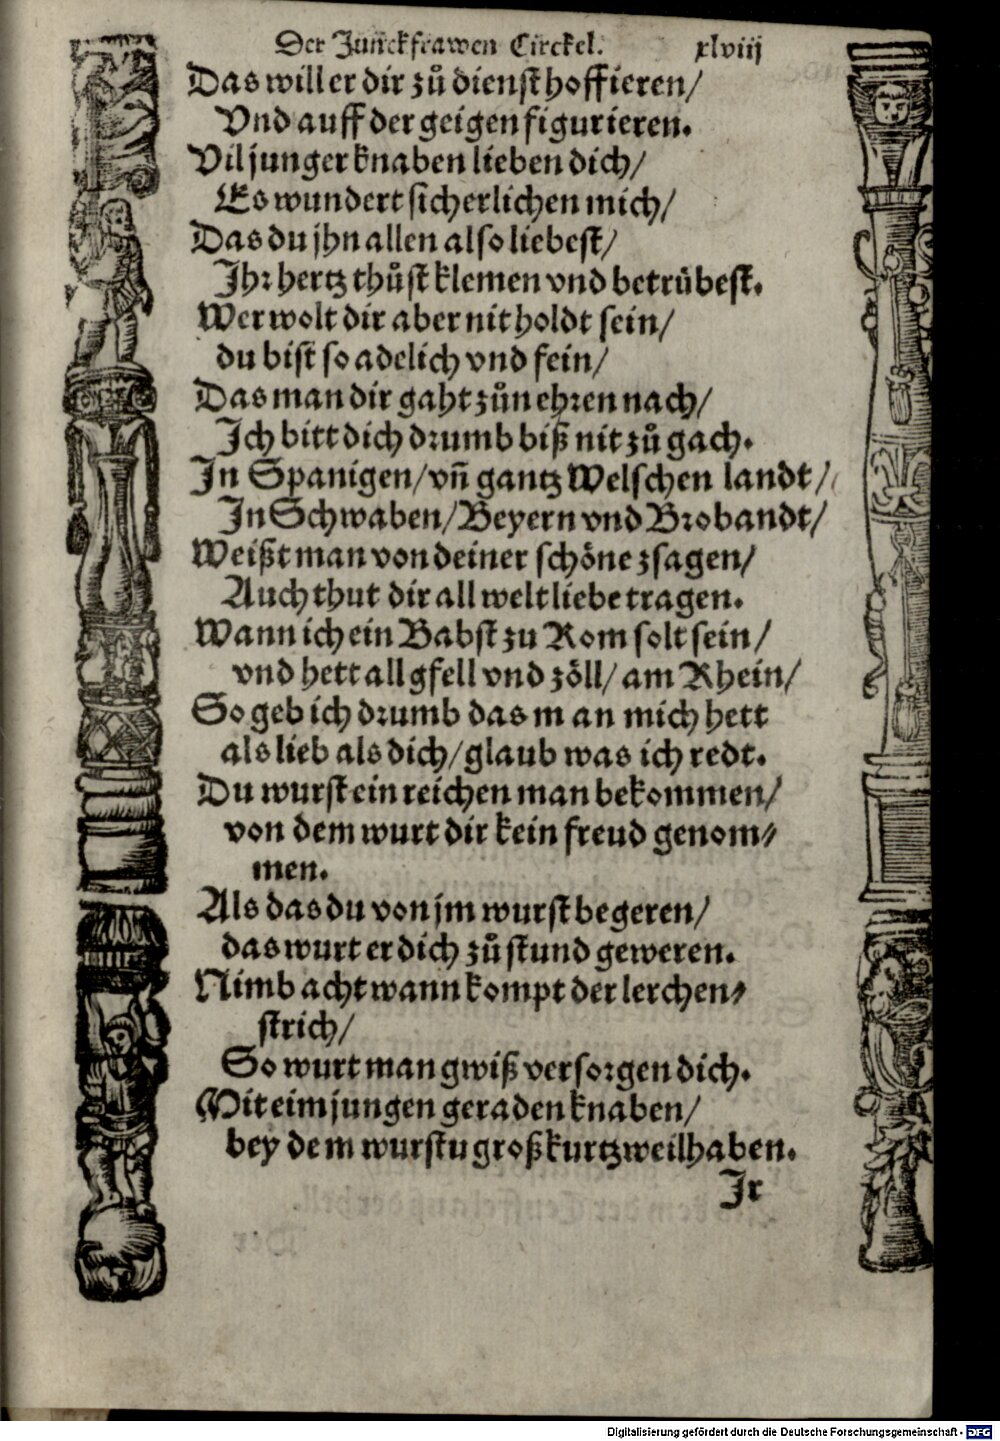 Der Junckfrawen Circkel. xlviij
Das will er dir zuͦ dienst hoffieren/
Vnd auff der geigen figurieren.
Vil junger knaben lieben dich/
Es wundert sicherlichen mich/
Das du jhn allen also liebest/
Jhr hertz thuͦst klemen vnd betrübest.
Wer wolt dir aber nit holdt sein/
du bist so adelich vnd fein/
Das man dir gaht zuͦn ehren nach/
Jch bitt dich drumb biß nit zuͦ gach.
Jn Spanigen/ vñ gantz Welschen landt/
Jn Schwaben/ Beyern vnd Brobandt/
Weißt man von deiner schöne zsagen/
Auch thut dir all welt liebe tragen.
Wann ich ein Babst zu Rom solt sein/
vnd hett all gfell vnd zöll/ am Rhein/
So geb ich drumb das m an mich hett
als lieb als dich/ glaub was ich redt.
Du wurst ein reichen man bekommen/
von dem wurt dir kein freud genom⸗
men.
Als das du von jm wurst begeren/
das wurt er dich zuͦ stund geweren.
Nimb acht wann kompt der lerchen⸗
strich/
So wurt man gwiß versorgen dich.
Mit eim jungen geraden knaben/
bey dem wurstu groß kurtzweil haben.
Jr
Digitalisierung gefördert durch die Deutsche Forschungsgemeinschaft - DFG